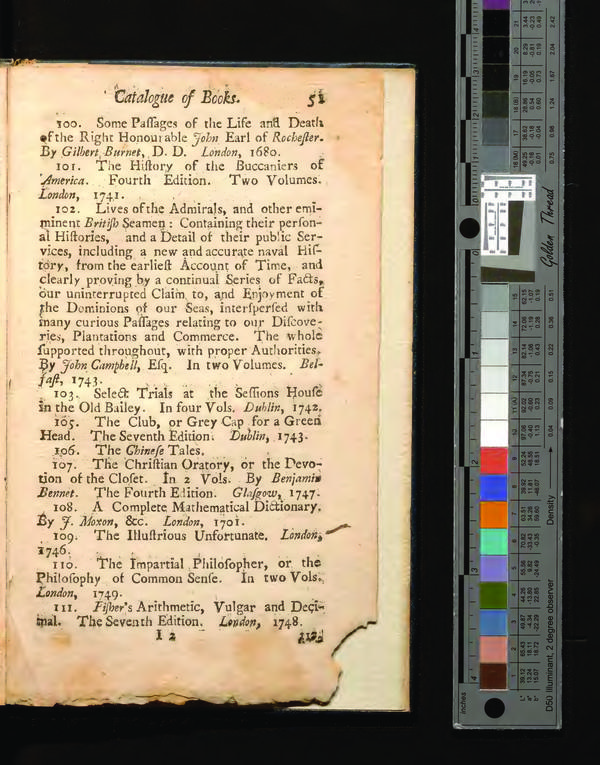 Catalogue of Books. 51
100. Some Paſſages of the Life and Death
of the Right Honourable John Earl of Rocheſter.
By Gilbert Burnet, D. D. London, 1680.
101. The Hiſtory of the Buccaniers of
America. Fourth Edition. Two Volumes.
London, 1741.
102. Lives of the Admirals, and other emi-
minent Britiſh Seamen : Containing their perſon-
al Hiſtories, and a Detail of their public Ser-
vices, including a new and accurate naval Hiſ-
tory, from the earlieſt Account of Time, and
clearly proving by a continual Series of Facts,
our uninterrupted Claim to, and Enjoyment of
the Dominions of our Seas, interſperſed with
many curious Paſſages relating to our Diſcove-
ries, Plantations and Commerce. The whole
ſupported throughout, with proper Authorities.
By John Campbell, Eſq. In two Volumes. Bel-
faſt, 1743.
103. Select Trials at the Seſſions Houſe
in the Old Bailey. In four Vols. Dublin, 1742.
105. The Club, or Grey Cap for a Green
Head. The Seventh Edition. Dublin, 1743.
106. The Chineſe Tales.
107. The Chriſtian Oratory, or the Devo-
tion of the Cloſet. In 2 Vols. By Benjamin
Bennet. The Fourth Edition. Glaſgow, 1747.
108. A Complete Mathematical Dictionary.
By J. Moxon, &c. London, 1701.
109. The Illuſtrious Unfortunate. London,
1746.
110. The Impartial Philoſopher, or the
Philoſophy of Common Senſe. In two Vols.
London, 1749.
111. Fiſher's Arithmetic, Vulgar and Deci-
mal. The Seventh Edition. London, 1748.
I 2 112.
Golden Thread
Density
D50 Illuminant, 2 degree observer
inches